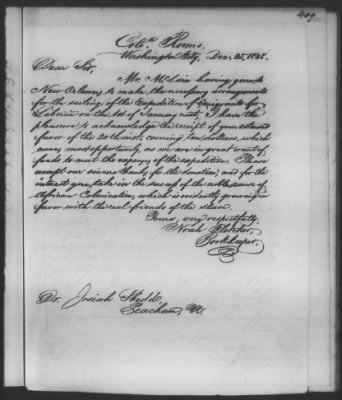 409
Coln. Rooms,
Washington City, Dec. 25, 1848.
Dear Sir,
Mr. McLain having gone to
New Orleans to make the necessary arrangements
for the sailing of the Expedition of Emigrants for
Liberia on the 1st of January next, I have the
pleasure to acknowledge the receipt of your esteemed
favor of the 20th inst. covering ten dollars, which
came most opportunely, as we are in great want of
funds to meet the expenses of the expedition. Please
accept our sincere thanks for the donation; and for the
interest you take in the success of the noble cause of
African Colonization, which is evidently growing in
favor with the real friends of the slave.
Yours, very respectfully,
Noah Fletcher,
Bookkeeper.
Dr. Josiah Shedd,
Peacham, Vt.